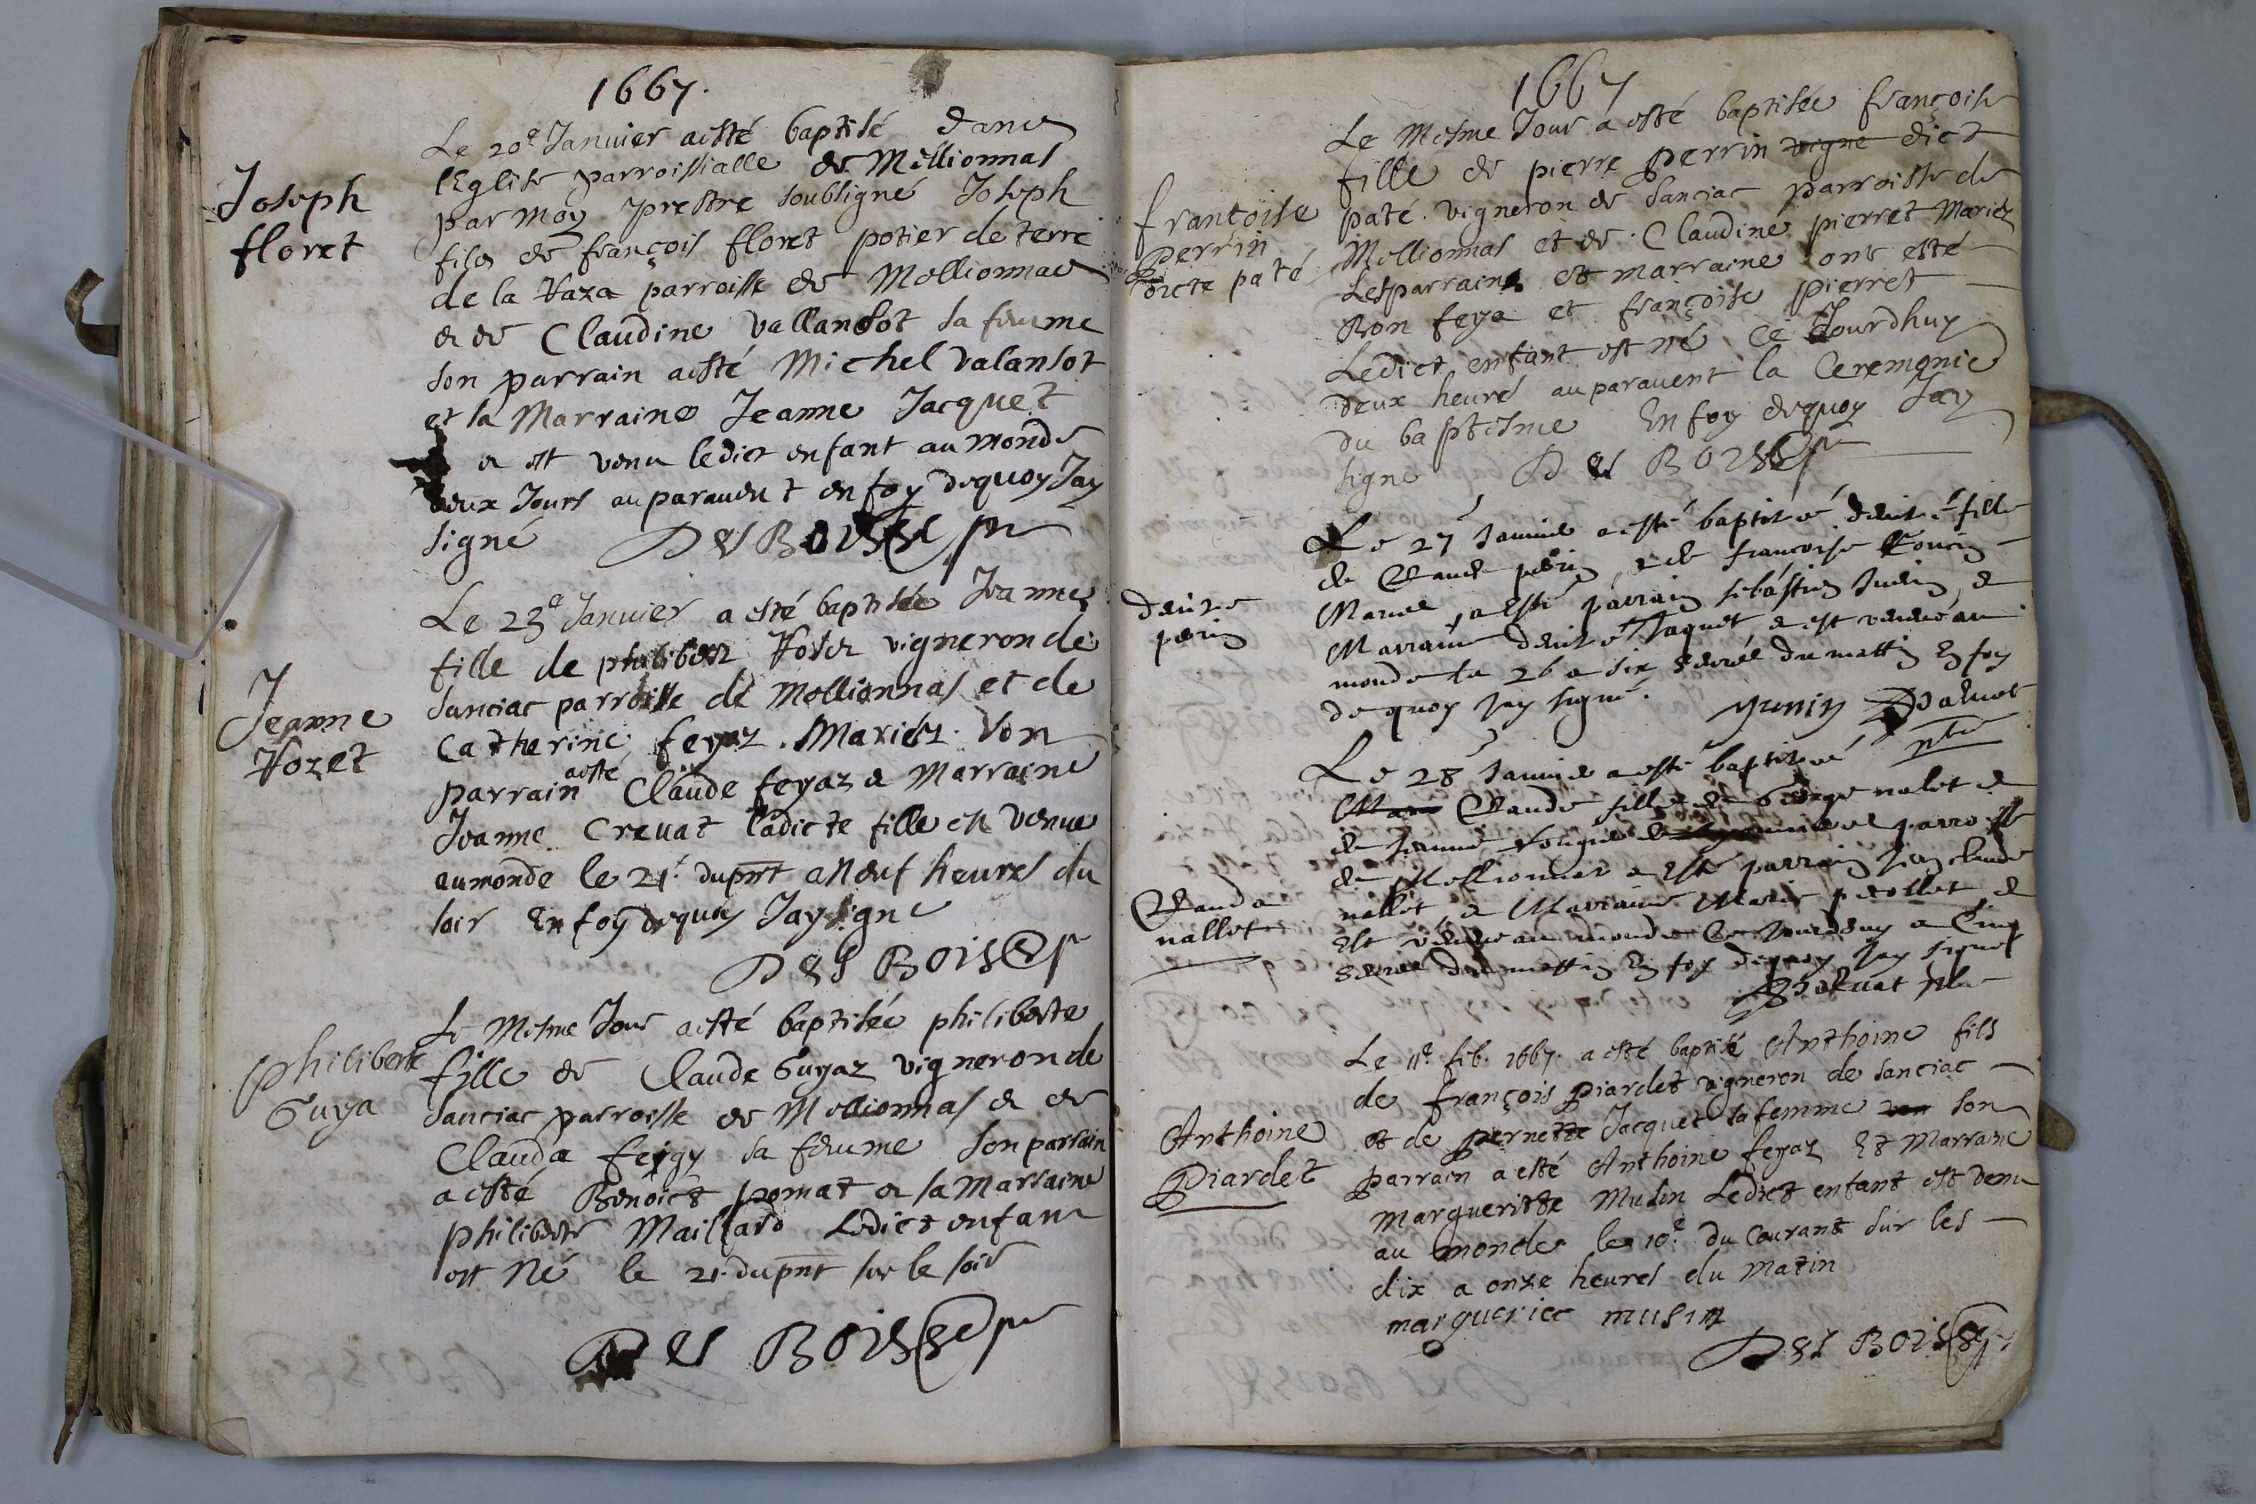 1667.
Joseph
floret
Le 20e Januier a esté baptisé dans
lEglise parroissialle de Mellionnas
par moy prestre soubsigné Joseph
fils de françois floret potier de terre
de la Vaza parroisse de Mellionnas
& de Claudine Vallansot sa femme
son parrain a esté Michel Valansot
et la Marraine Jeanne Jacquet
& est venu ledict enfant au monde
deux Jours auparauent en foy dequoy Jay
signé Des Bois
Jeanne
Vozet
Le 23e Januier a esté baptisée Jeanne
fille de philibert Vozet vigneron de
Sanciac parroisse de Mellionnas et de
Catherine feyaz. Mariéz. Son
parrain a esté Claude feyaz & Marraine
Jeanne Creuat ladicte fille est venue
au monde le 21e dupnt a neuf heures du
soir En foy dequoy Jay signé
Des Bois
philiberte
Guya
Le Mesme Jour a esté baptisée philiberte
fille de Claude Guyaz vigneron de
Sanciac parroisse de Mellionnas & de
Clauda feygy sa femme son parrain
a esté Benoict pomat & sa Marraine
philiberte Maillard Ledict enfant
est Né le 21. dupnt sur le soir
Des Bois
1667
françoise
perrin
dicte paté
Le Mesme Jour a esté baptisée françoise
fille de pierre perrin vigne dict
paté. vigneron de Sanciac parroisse de
Mellionnas et de Claudine pierret Mariéz
Les parrains et marraine ont esté
feya et françoise pierret
Ledict enfant est né Ce Jourdhuy
deux heures auparauent la Ceremonie
du baptesme En foy dequoy Jay
signé Des Bois
Denise
perin
Le 27 Januier a esté baptisé denise fille
de Claude perin, & de francoise
Mariés, a esté parrain sebastien &
Marraine denise Jaquet & est venue au
monde le 26 a six heures du mattin En foy
de quoy Jay signé.
Clauda
nallet
Le 28 Januier a esté baptisé
Clauda fille de George nalet &
de Jeanne parroisse
de Mellionnas a Esté parrain Jean claude
nallet, & Marraine Marie &
Est venue au monde Ce Jourdhuy a Cinq
heures du mattin En foy dequoy Jay signé
Anthoine
Piardet
Le 11e feb. 1667. a esté baptisé Anthoine fils
de françois piardet vigneron de Sanciac
et de pernette Jacquet sa femme son
parrain a esté Anthoine feyaz Et Marraine
Margueritte Musin Ledict enfant est venu
au monde le 10e du Courant sur les
dix a onze heures du Matin
musin
Des Bois